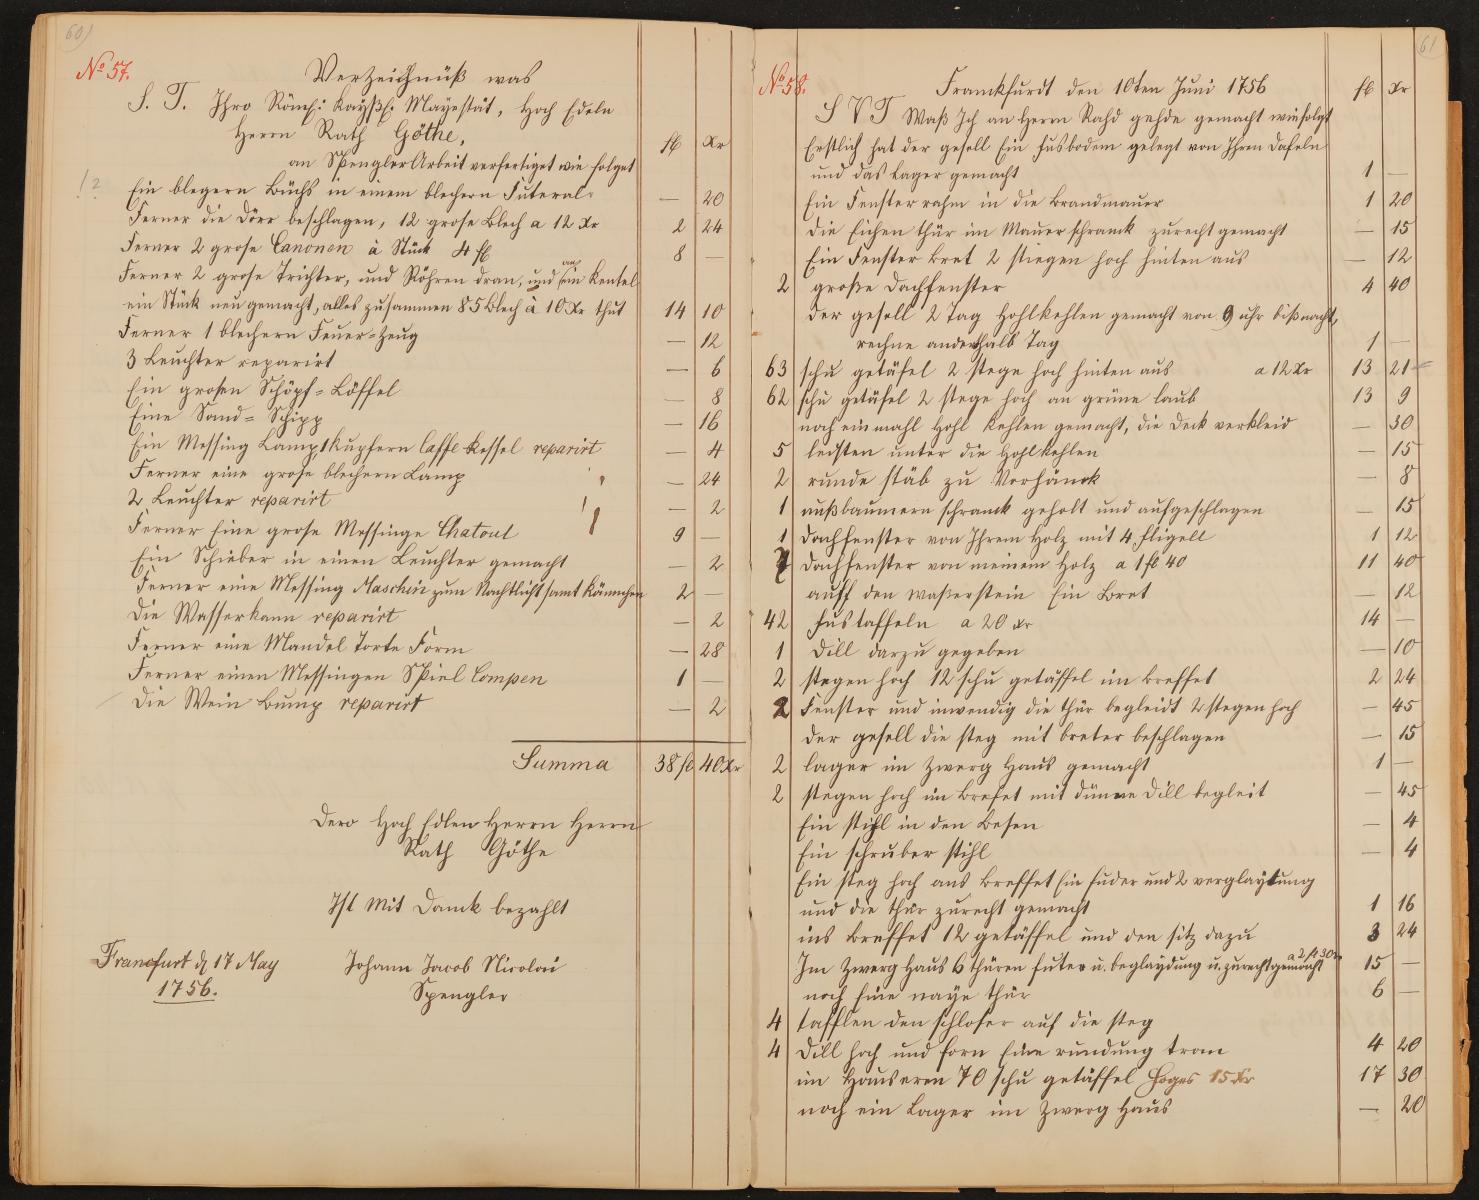 60)
No 57.
Verzeichnüß was
S. T. Ihro Römch: Kayßh: Mayestät, Hoch Edeln
Herrn Rath Göthe,
an Spengler Arbeit verfertiget wie folget
fl Xr
!?
Ein blegern Büchs in einem blechern Futeral. — 20
Ferner die Dörr beschlagen, 12 grose Blech a 12 Xr 2 24
Ferner 2 grose Canonen à Stück 4 fl 8 —
Ferner 2 grose Trichter, und Röhren dran, und an ein Kentel
ein Stück neu gemacht, alles zusammen 85 Blech à 10 Xr thut 14 10
Ferner 1 blechern Feuer=Zeug — 12
3 Leuchter reparirt — 6
Ein grosen Schöpf=Löffel — 8
Eine Sand=Schipp — 16
Ein Messing Lamp 1 kupfern Caffe Kessel reparirt — 4
Ferner eine grose blechern Lamp — 24
2 Leuchter reparirt — 2
Ferner Eine grose Messinge Chatoul 9 —
Ein Schieber in einen Leuchter gemacht — 2
Ferner eine Messing Maschin zum Nachtlicht samt Kännchen 2 —
Die Wasserkann reparirt — 2
Ferner eine Mandel Torte Form — 28
Ferner einen Messingen Spiel Compen 1 —
Die Wein Bump reparirt — 2
Summa 38 fl 40 Xr
Dero Hoch Edlen Herrn Herrn
Rath Göthe
Ist Mit Danck bezahlt
Francfurt d 17 May
1756.
Johann Jacob Nicolai
Spengler
61
No 58.
Franckfurdt den 10ten Juni 1756
fl Xr
S V T Waß Ich an Herrn Rahd gehde gemacht wie folgt
Erstlich hat der gesell Ein fusbodem gelegt von Ihren Dafeln
und das Lager gemacht 1 —
Ein Fensterrahm in die Brandmauer 1 20
die Eichen thür im Mauerschranck zurecht gemacht — 15
Ein Fenster bret 2 stiegen hoch hinten aus — 12
2 große Dachfenster 4 40
der gesell 2 Tag Hohlkehlen gemacht von 9 uhr biß nacht,
rechne anderthalb Tag 1 —
63 schu getäfel 2 stege hoch hinten aus a 12 Xr 13 21
62 schu getäfel 2 stege hoch an grüne laub 13 9
noch ein mahl Hohl Kehlen gemacht, die Deck verkleid — 30
5 leisten unter die Hohlkehlen — 15
2 runde stäb zu Vorhänck — 8
1 nußbaumern schranck geholt und aufgeschlagen — 15
1 Dachfenster von Ihrem Holz mit 4 fligell 1 12
7 Dachfenster von meinem Holz a 1 fl 40 11 40
auff den waßerstein Ein Bret — 12
42 fustaffeln a 20 xr 14 —
1 Dill darzu gegeben — 10
2 stegen hoch 12 schu getäffel im Breffet 2 24
2 Fenster und inwendig die thür begleidt 2 stegen hoch — 45
der gesell die steg mit breter beschlagen — 15
2 lager im Zwerg Haus gemacht 1 —
2 stegen hoch im Brefet mit dünne Dill begleit — 45
Ein stihl in den Besen — 4
Ein schruber stihl — 4
Ein steg hoch ans Breffet Ein fuder und 2 verglaytung
und die thür zurecht gemacht 1 16
ins Breffet 12 getäffel und den sitz dazu 3 24
Im Zwerg Haus 6 thüren futer u. beglaydung u. zurecht gemacht a 2 fl 30 15 —
noch Eine naye thür 6 —
4 tafflen den schlofer auf die steg
4 Dill hoch und forn Eine rundung tran 4 20
im Hauseren 70 schu getäffel hoges 15 Xr 17 30
noch ein Lager im Zwerg Haus — 20